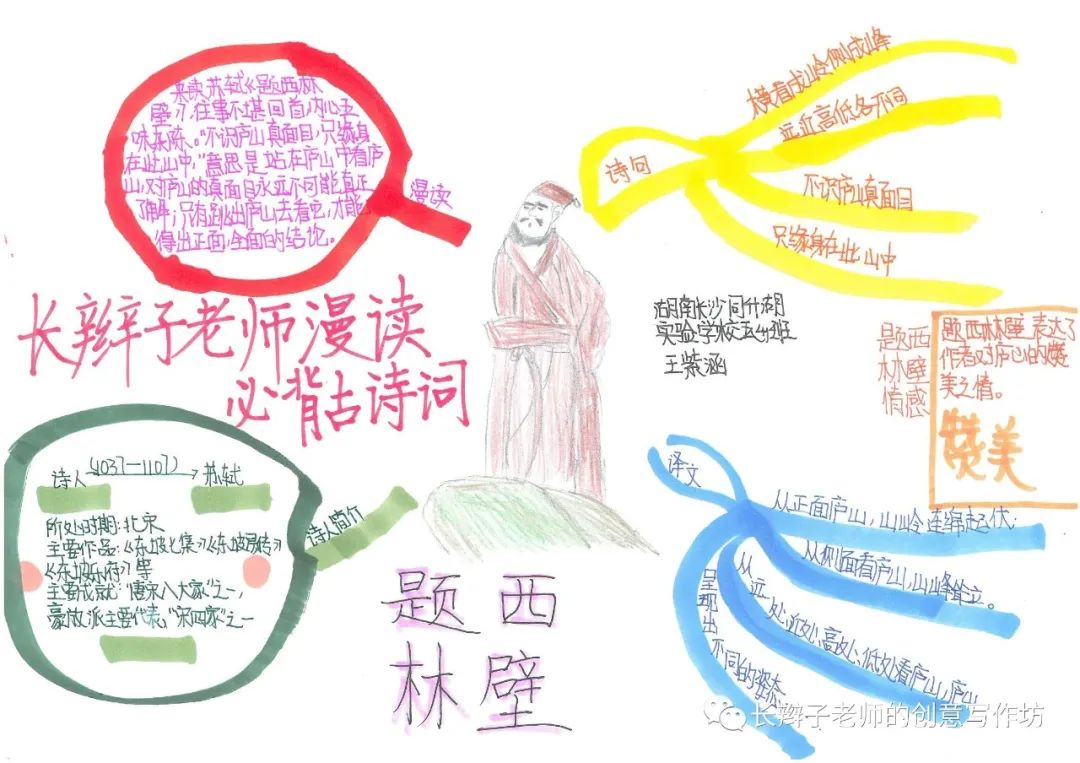 来读苏轼《题西林
壁》,往事不堪回首,内心五
味杂陈。“不识庐山真面目,只缘身
在此山中,”意思是站在庐山中看庐
山,对庐山的真面目永远不可能真正
了解;只有跳出庐山去看它,才能
得出正面、全面的结论。
漫读
诗句
横看成岭侧成峰
远近高低各不同
不识庐山真面目
只缘身在此山中
长辫子老师漫读
必背古诗词
湖南长沙同升湖
实验学校五2班
王紫涵
题西
林壁
情感
题西林壁表达了
作者对庐山的赞
美之情。
赞美
诗人(1037—1107)苏轼
所处时期:北宋
主要作品:《东坡七集》《东坡易传》
《东坡乐府》等
主要成就:“唐宋八大家”之一,
豪放派主要代表,“宋四家”之一
诗人简介
题西
林壁
译文
从正面庐山,山岭连绵起伏;
从侧面看庐山,山峰耸立。
从远处、近处、高处、低处看庐山,庐山
呈现出不同的姿态
长辫子老师的创意写作坊